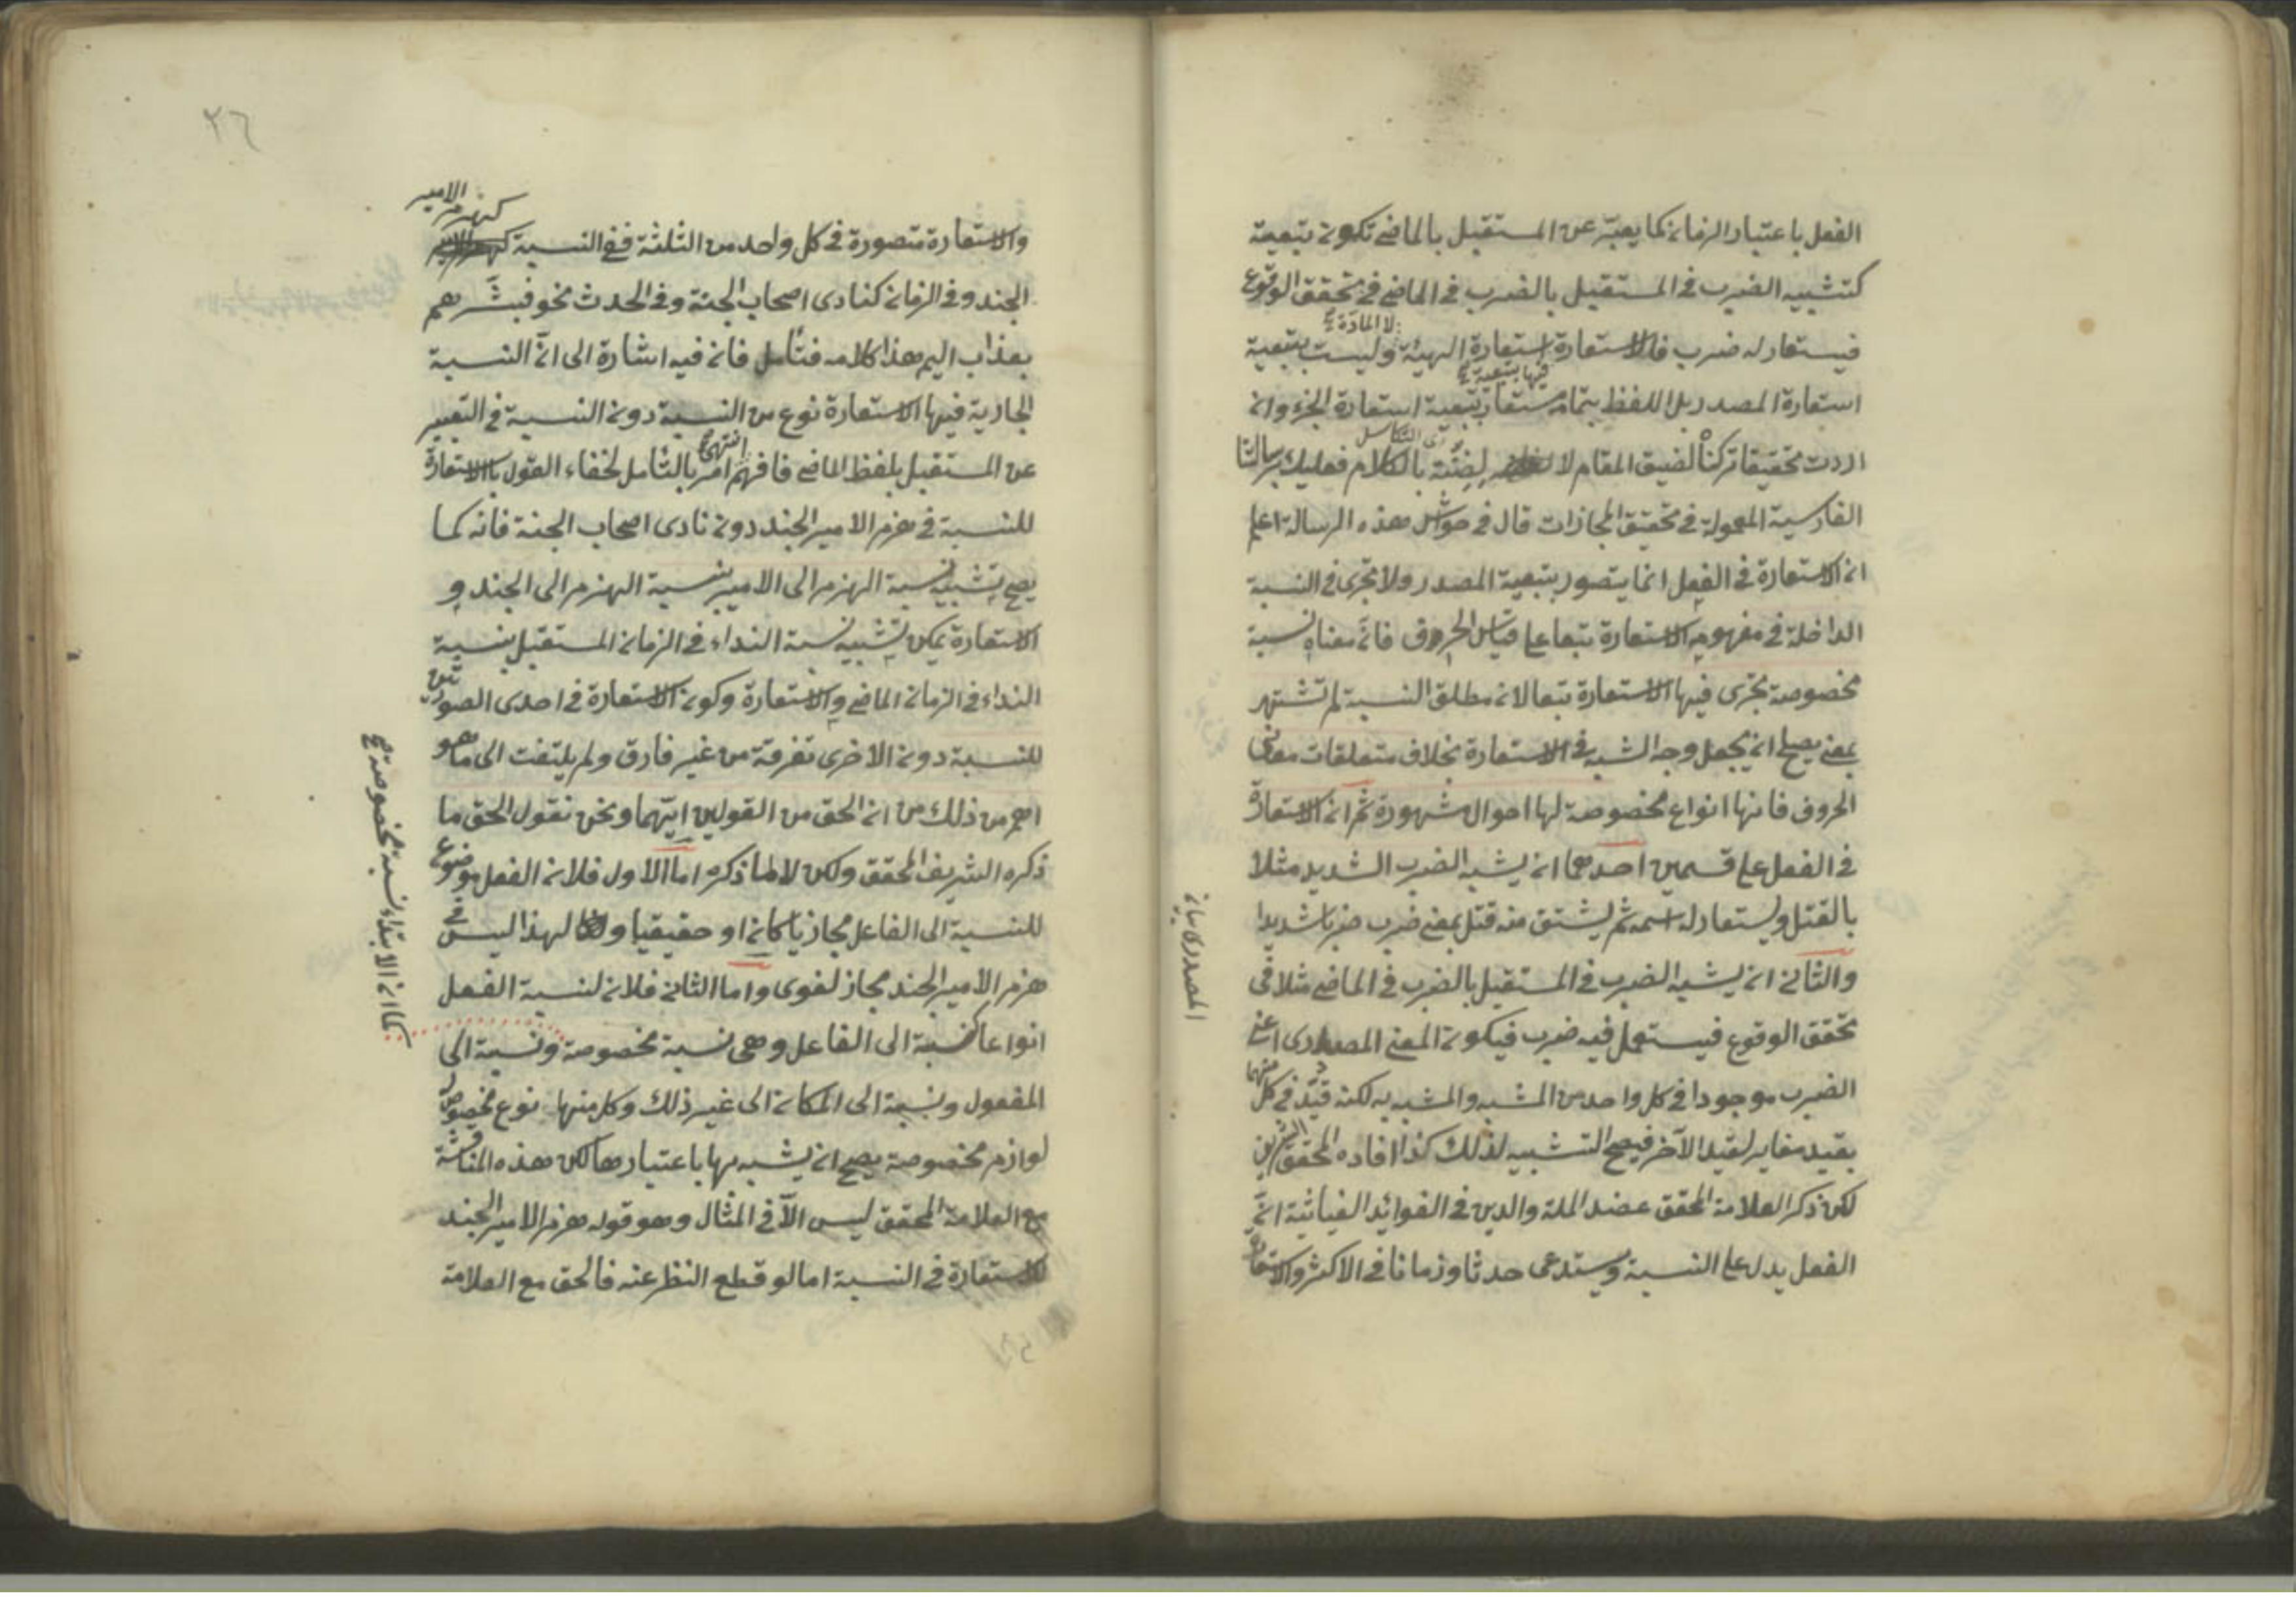 الفعل باعتبار الزمان كما يعبر عن المستقبل بالماضى تكون تبعية
كتشبيه الضرب فى المستقبل بالضرب فى الماضى فى تحقق الوقوع
فيستعار له ضرب فالاستعارة استعارة الهيئة وليست بتبعية
لا المادة صح
استعارة المصدر بل اللفظ بتمامه مستعار بتبعية استعارة الجزء وان
فيها بتبعية صح
اردت تحقيقا تركناه لضيق المقام لا لضنة بالكلام فعليك برسالتنا
الفارسية المعمولة فى تحقيق المجازات قال فى حواشى هذه الرسالة اعلم
ان الاستعارة فى الفعل انما يتصور بتبعية المصدر ولا تجرى فى النسبة
الداخلة فى مفهومه الاستعارة تبعا على قياس الحروف فان معناه نسبة
مخصوصة تجرى فيها الاستعارة تبعا لان مطلق النسبة لم تشتهر
بمعنى يصلح ان يجعل وجه الشبه فى الاستعارة بخلاف متعلقات معانى
الحروف فانها انواع مخصوصة لها احوال مشهورة ثم ان الاستعارة
فى الفعل على قسمين احدهما ان يشبه الضرب الشديد مثلا
بالقتل ويستعار له اسمه ثم يشتق منه قتل بمعنى ضرب ضربا شديدا
والثانى ان يشبه الضرب فى المستقبل بالضرب فى الماضى مثلا فى
تحقق الوقوع فيستعمل فيه ضرب فيكون المعنى المصدرى اعنى
الضرب موجودا فى كل واحد من المشبه والمشبه به لكنه قيد فى كل منهما
بقيد مغاير لقيد الآخر فيصح التشبيه لذلك كذا افاده المحقق الشريف
لكن ذكر العلامة المحقق عضد الملة والدين فى الفوائد الغياثية ان
الفعل يدل على النسبة ويستدعى حدثا وزمانا فى الاكثر والاستعارة
المصدرى بيانه
٢٦
والاستعارة متصورة فى كل واحد من الثلثة ففى النسبة كهزم الامير
الجند وفى الزمان كنادى اصحاب الجنة وفى الحدث نحو فبشرهم
بعذاب اليم هذا كلامه فتأمل فان فيه اشارة الى ان النسبة
الجارية فيها الاستعارة نوع من النسبة دون النسبة فى التعبير
عن المستقبل بلفظ الماضى فافهم انتهى امر بالتأمل لخفاء القول بالاستعارة
للنسبة فى هزم الامير الجند دون نادى اصحاب الجنة فانه كما
يصح تشبيه نسبة الهزم الى الامير بنسبة الهزم الى الجند و
الاستعارة يمكن تشبيه نسبة النداء فى الزمان المستقبل بنسبة
النداء فى الزمان الماضى والاستعارة وكون الاستعارة فى احدى الصورتين
للنسبة دون الاخرى تفرقة من غير فارق ولم يلتفت الى ما هو
اهم من ذلك من ان الحق من القولين ايهما ونحن نقول الحق ما
ذكره الشريف المحقق ولكن لا لما ذكره اما الاول فلان الفعل موضوع
للنسبة الى الفاعل مجازيا كان او حقيقيا ولهذا ليس فى
هزم الامير الجند مجاز لغوى واما الثانى فلان لنسبة الفعل
انواعا كنسبة الى الفاعل وهى نسبة مخصوصة ونسبة الى
المفعول ونسبة الى المكان الى غير ذلك وكل منها نوع مخصوص له
لوازم مخصوصة يصح ان يشبه بها باعتبارها لكن هذه المناقشة
مع العلامة المحقق ليس الا فى المثال وهو قوله هزم الامير الجند
للاستعارة فى النسبة اما لو قطع النظر عنه فالحق مع العلامة
كما ان الابتداء نسبة مخصوصة صح